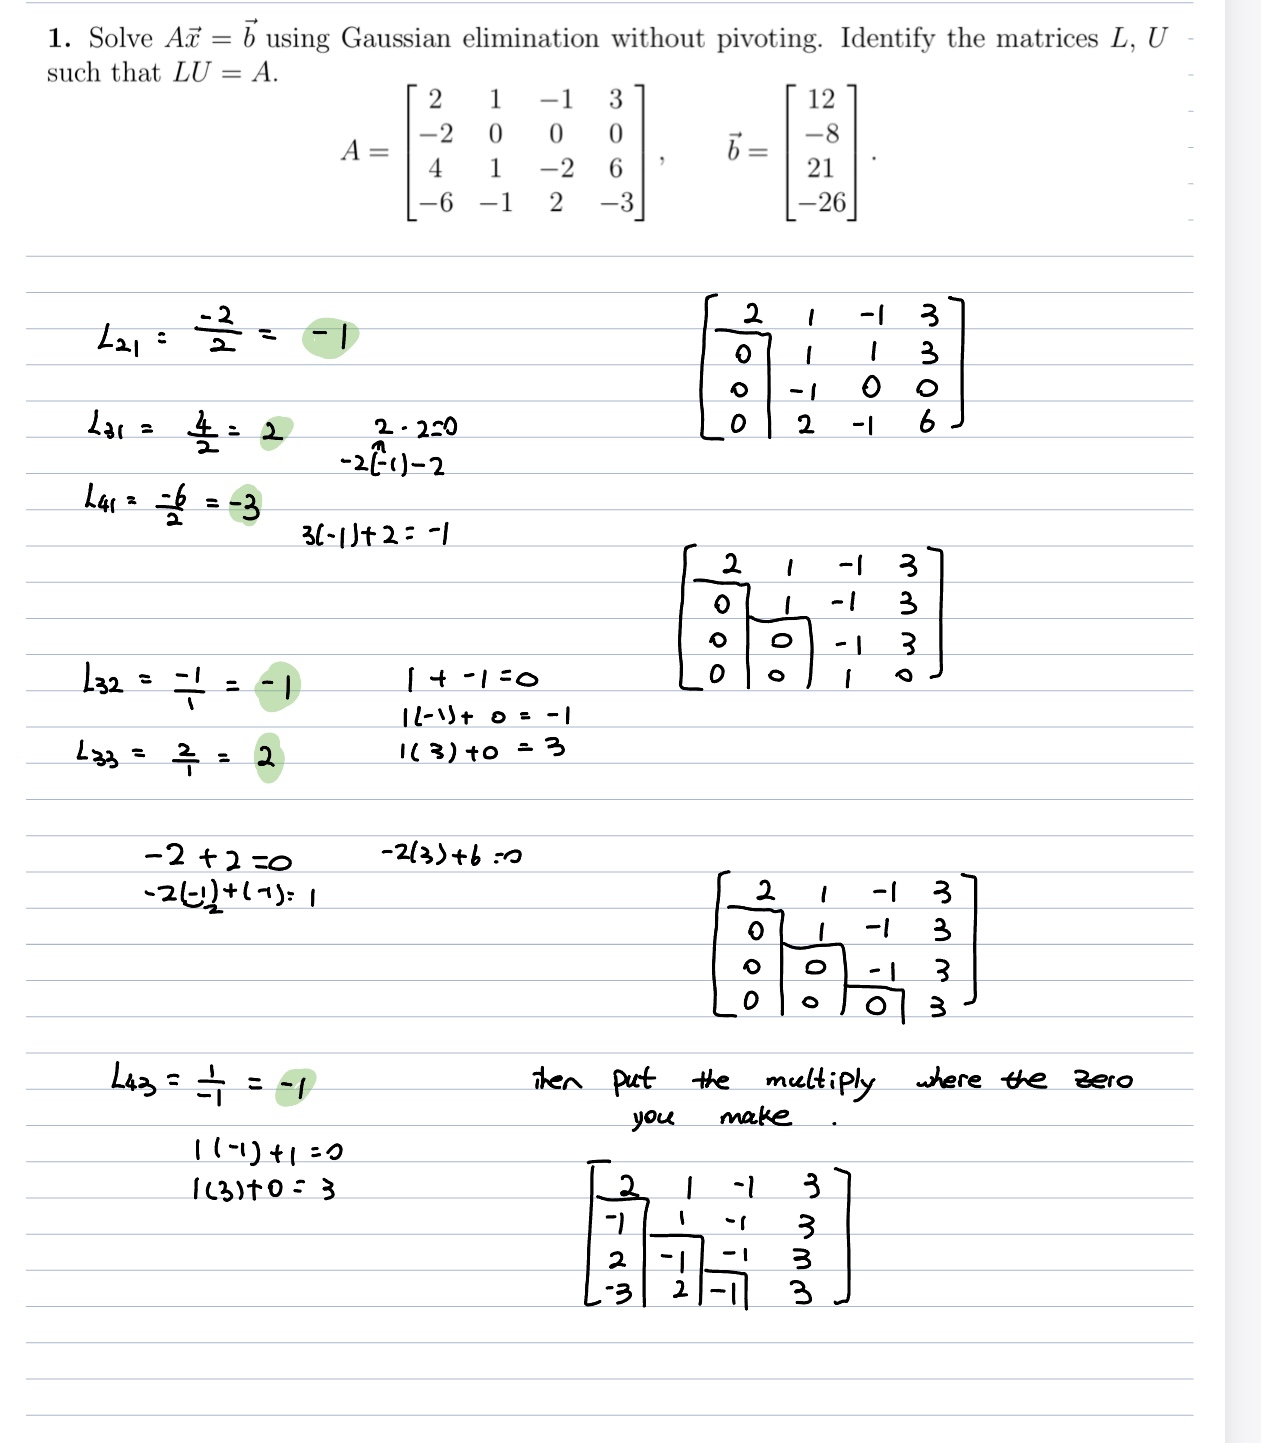 1. Solve Ax⃗ = b⃗ using Gaussian elimination without pivoting. Identify the matrices L, U
such that LU = A.
A = [ 2 1 −1 3 ; −2 0 0 0 ; 4 1 −2 6 ; −6 −1 2 −3 ], b⃗ = [ 12 ; −8 ; 21 ; −26 ].
L21 = -2/2 = -1
2 1 -1 3
0 1 1 3
0 -1 0 0
0 2 -1 6
L31 = 4/2 = 2
2 - 2=0
-2(-1)-2
L41 = -6/2 = -3
3(-1)+2= -1
2 1 -1 3
0 1 -1 3
0 0 -1 3
0 0 1 0
L32 = -1/1 = -1
1 + -1 =0
1(-1)+ 0 = -1
L33 = 2/1 = 2
1(3)+0 = 3
-2 +2 =0
-2(3)+6 =0
-2(-1)+(-1)= 1
2
2 1 -1 3
0 1 -1 3
0 0 -1 3
0 0 0 3
L43 = 1/-1 = -1
then put the multiply where the zero
you make .
1(-1)+1=0
1(3)+0= 3
2 1 -1 3
-1 1 -1 3
2 -1 -1 3
-3 2 -1 3